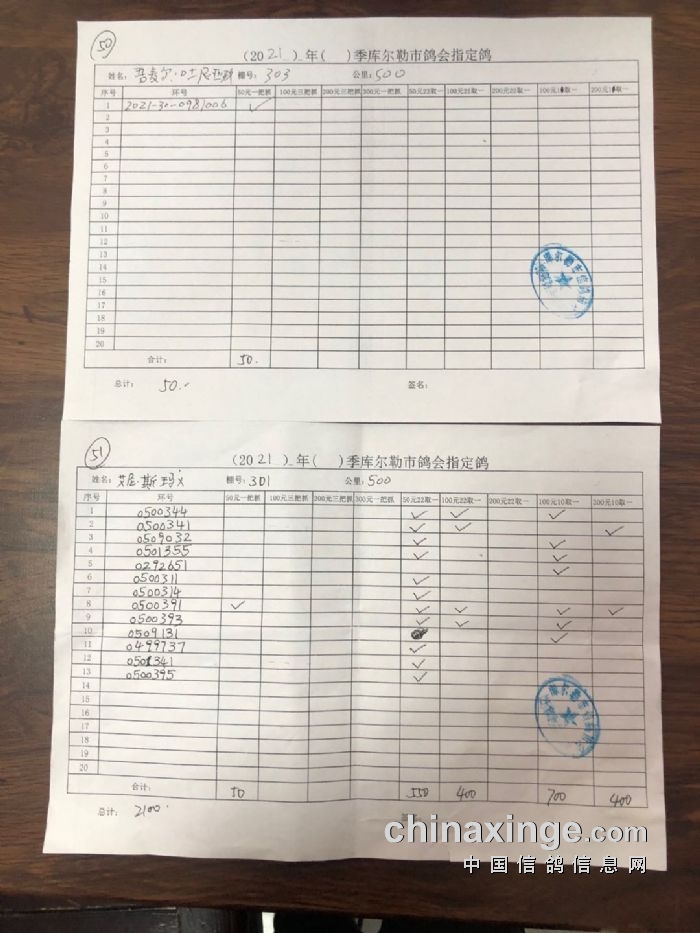 50
(2021)年( )季库尔勒市鸽会指定鸽
姓名: 棚号: 303 公里: 500
序号 环号 50元一把抓 100元三把抓 200元三把抓 300元一把抓 50元22取一 100元22取一 200元22取一 100元10取一 200元10取一
1 2021-30-0981006 ✓
2
3
4
5
6
7
8
9
10
11
12
13
14
15
16
17
18
19
20
合计: 50.
总计: 50.- 签名:
库尔勒市信鸽
51
(2021)年( )季库尔勒市鸽会指定鸽
姓名: 艾尼·斯玛义 棚号: 301 公里: 500
序号 环号 50元一把抓 100元三把抓 200元三把抓 300元一把抓 50元22取一 100元22取一 200元22取一 100元10取一 200元10取一
1 0500344 ✓ ✓ ✓
2 0500341 ✓ ✓ ✓
3 0509032 ✓ ✓
4 0501355 ✓ ✓
5 0292651 ✓
6 0500311 ✓
7 0500314 ✓
8 0500391 ✓ ✓ ✓ ✓ ✓
9 0500393 ✓ ✓ ✓
10 0509131
11 0499737 ✓ ✓
12 0501341 ✓
13 0500395 ✓
14
15
16
17
18
19
20
合计: 50 550 400 700 400
总计: 2100.
chinaxinge.com
中国信鸽信息网